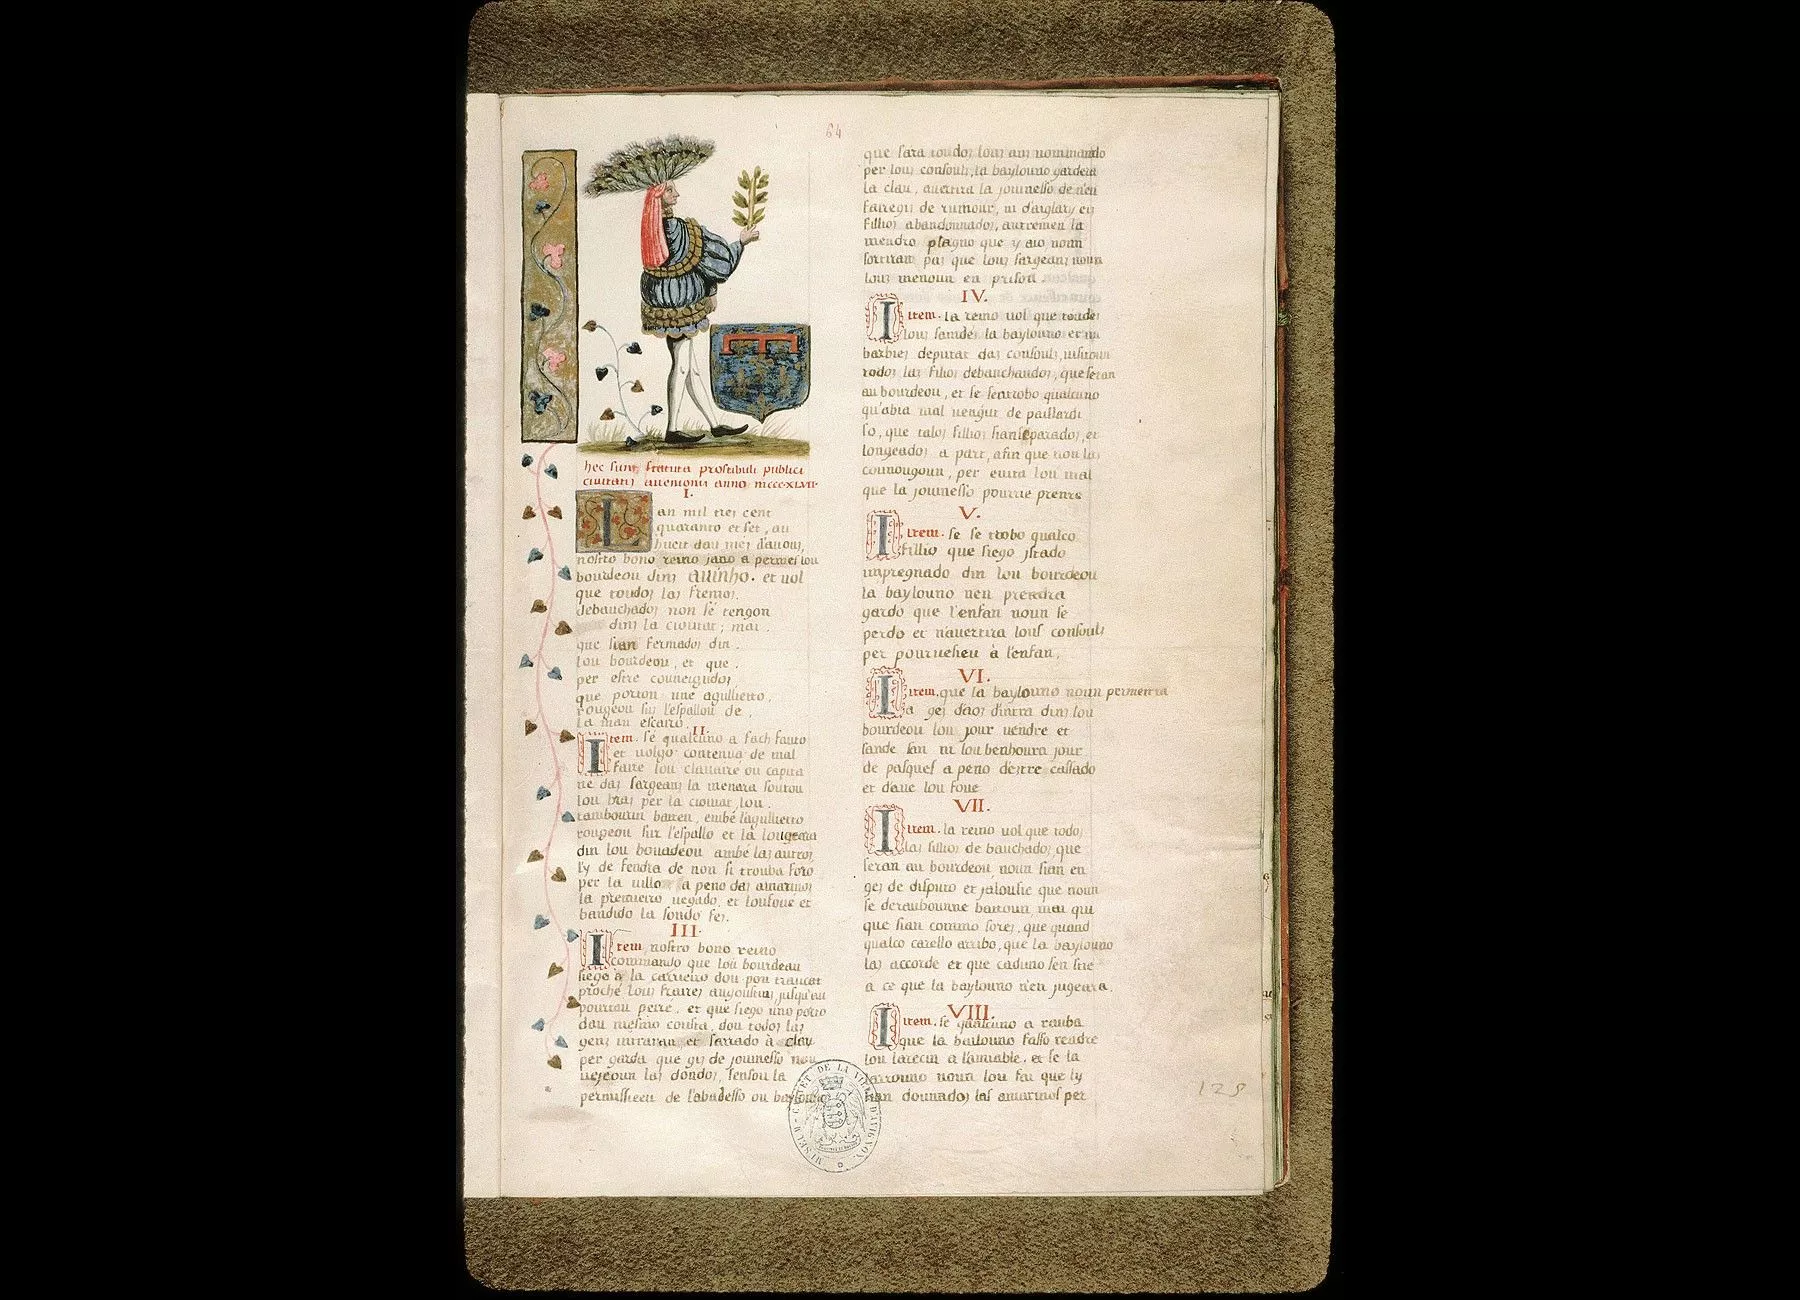 64
hec sunt statuta prostibuli publici
ciuitatis auenionis anno mcccxlvii.
I.
Lan mil tres cent
quaranto et set, au
hueit dau mes d'avoust,
nostro bono reino jano a permes lou
bourdeou dins avinho. et vol
que toudos las fremos.
debauchados non se tengon
dins la cioutat; mai.
que sian fermados din.
lou bourdeou, et que.
per estre couneigudos,
que porton une agullietto,
rougeou sus l'espallou de,
la man escairo
II.
Item. sé qualcuno a fach fauto
et volgo contenua de mal
faire lou clavaire ou capita
ne das sargeans la menara soutou
lou bras per la cioutat, lou.
tambourin batten, embé l'agullietto
rougeou sur l'espallo et la lougeara
din lou bouadeou ambé las autros,
ly de fendra de non si trouba foro
per la villo a peno das amarinos
la premieiro vegado, et loufoué et
bandido la sondo fes.
III.
Item, nostro bono reino
commando que lou bourdeau
siego à la carrieiro dou pon traucat
proché lous fraires augoustins, jusqu'au
pourtau peiré. et que siego uno porto
dau mesmo cousta, dou todos las
gens intraran, et sarrado à clau
per garda que ges de jouinesso nou
vejeoun las dondos, sensou la
permissieen de l'abadesso ou baylouno
que sara toudos lous ans noumnado
per lous consouls, la baylouno gardera
la clau, avertira la jouinesso de n'en
faire ges de rumour, ni d'aiglary eis
fillios abandounados, autremen la
mendro plagno que y aio noun
sortiran pas que lous sargeans noun
lous menoun en prison.
IV.
Item. la reino vol que toudes
lous samdes la baylouno et un
barbies deputat das consouls, visitoun
todos las fillios débauchados, que seran
au bourdeou, et se sen trobo qualcuno
qu'abia mal vengut de paillardi
so, que talos fillios sian séparados, et
longeados a part, afin que non las
counougoun, per evita lou mal
que la jouinesso pourrie prenre
V.
Item. se se trobo qualco
fillio que siego istado
impregnado din lou bourdeou
la baylouno n'en prendra
gardo que l'enfan noun se
perdo et n'avertira lous consouls
per pourvesieu à l'enfan.
VI.
Item. que la baylouno noun permetra
a ges d'aos d'intra dins lou
bourdeou lou jour vendre et
sande san ni lou benhoura jour
de pasques a peno d'estre cassado
et d'avé lou foué
VII.
Item. la reino vol que todos
las fillios de bauchados, que
seran au bourdeou noun sian en
ges de disputo et jalousie que noun
se deraubounne battoun, mai qui
que sian commo sores, que quand
qualco carello arribo, que la baylouno
las accorde et que caduno s'en stie
a ce que la baylouno n'en jugeara.
VIII.
Item. sé qualcuno a rauba
que la bailouno fasso rendre
lou larecin a l'amiable. et se la
larrouno noun lou fai que ly
sian dounados las amarinos per
MUSEUM-CALVET DE LA VILLE D'AVIGNON
125